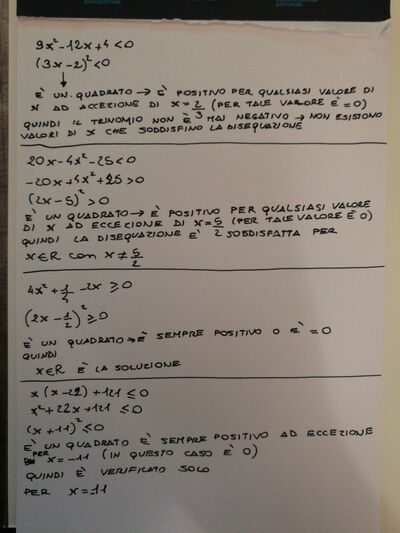 9x²-12x+4<0
(3x-2)²<0
È UN QUADRATO → È POSITIVO PER QUALSIASI VALORE DI
X AD ACCEZIONE DI X=2/3 (PER TALE VALORE È =0)
QUINDI IL TRINOMIO NON È MAI NEGATIVO → NON ESISTONO
VALORI DI X CHE SODDISFINO LA DISEQUAZIONE
20x-4x²-25<0
-20x+4x²+25>0
(2x-5)²>0
È UN QUADRATO → È POSITIVO PER QUALSIASI VALORE
DI X AD ECCEZIONE DI X=5/2 (PER TALE VALORE È 0)
QUINDI LA DISEQUAZIONE È SODDISFATTA PER
X∈R CON X≠5/2
4x²+1/4-2x≥0
(2x-1/2)²≥0
È UN QUADRATO → È SEMPRE POSITIVO O È =0
QUINDI
X∈R È LA SOLUZIONE
x(x-22)+121≤0
x²+22x+121≤0
(x+11)²≤0
È UN QUADRATO E' SEMPRE POSITIVO AD ECCEZIONE
PER X=-11 (IN QUESTO CASO È 0)
QUINDI È VERIFICATO SOLO
PER X=-11